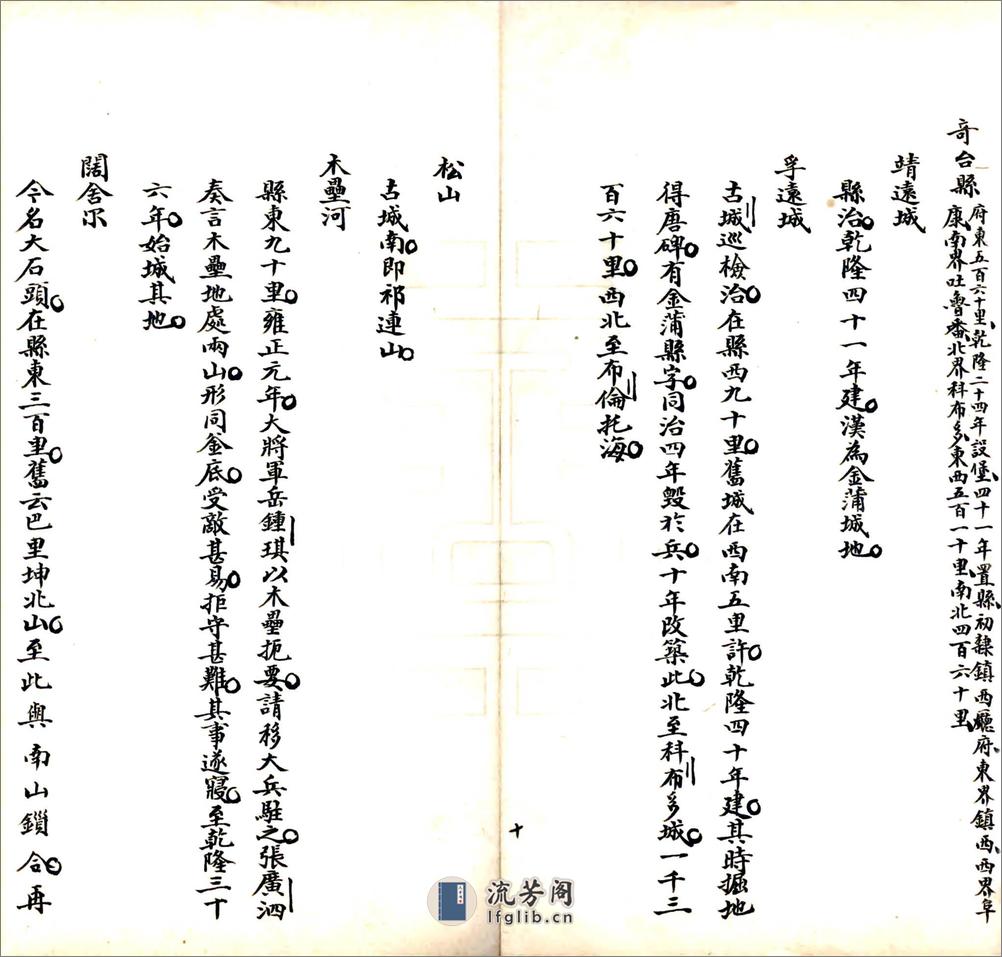 奇台縣府東五百六十里乾隆二十四年設堡四十一年置縣初隸鎮西廳府東界鎮西西界阜
康南界吐魯番北界科布多東西五百一十里南北四百六十里
靖遠城
縣治乾隆四十一年建漢為金蒲城地
孚遠城
古城巡檢治在縣西九十里舊城在西南五里許乾隆四十年建其時掘地
得唐碑有金蒲縣字同治四年毀於兵十年改築此北至科布多城一千三
百六十里西北至布倫托海
十
松山
古城南即祁連山
木壘河
縣東九十里雍正元年大將軍岳鍾琪以木壘扼要請移大兵駐之張廣泗
奏言木壘地處兩山形同釜底受敵甚易拒守甚難其事遂寢至乾隆三十
六年始城其地
闊舍尔
今名大石頭在縣東三百里舊云巴里坤北山至此與南山鎖合再
流芳阁
lfglib.cn